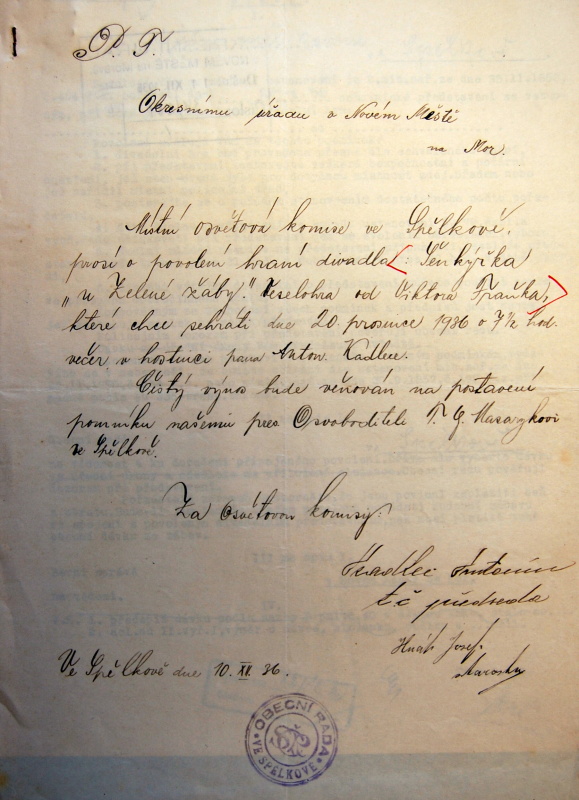 P. T.
Okresnímu úřadu v Novém Městě
na Mor.
Místní osvětová komise ve Spělkově,
prosí o povolení hraní divadla: Šenkýřka
"u Zelené žáby." Veselohra od Viktora Fraňka,
které chce sehráti dne 20. prosince 1936 o 7½ hod.
večer, v hostinci pana Anton. Kadlec.
Čistý výnos bude věňován na postavení
pomníku našemu pres. Osvoboditeli T. G. Masarykovi
ve Spělkově.
Za Osvětovou komisy:
Kadlec Antonín
t.č předseda
Josef.
starosta
Ve Spělkově dne 10. XII. 36.
OBECNÍ RADA
VE SPĚLKOVĚ